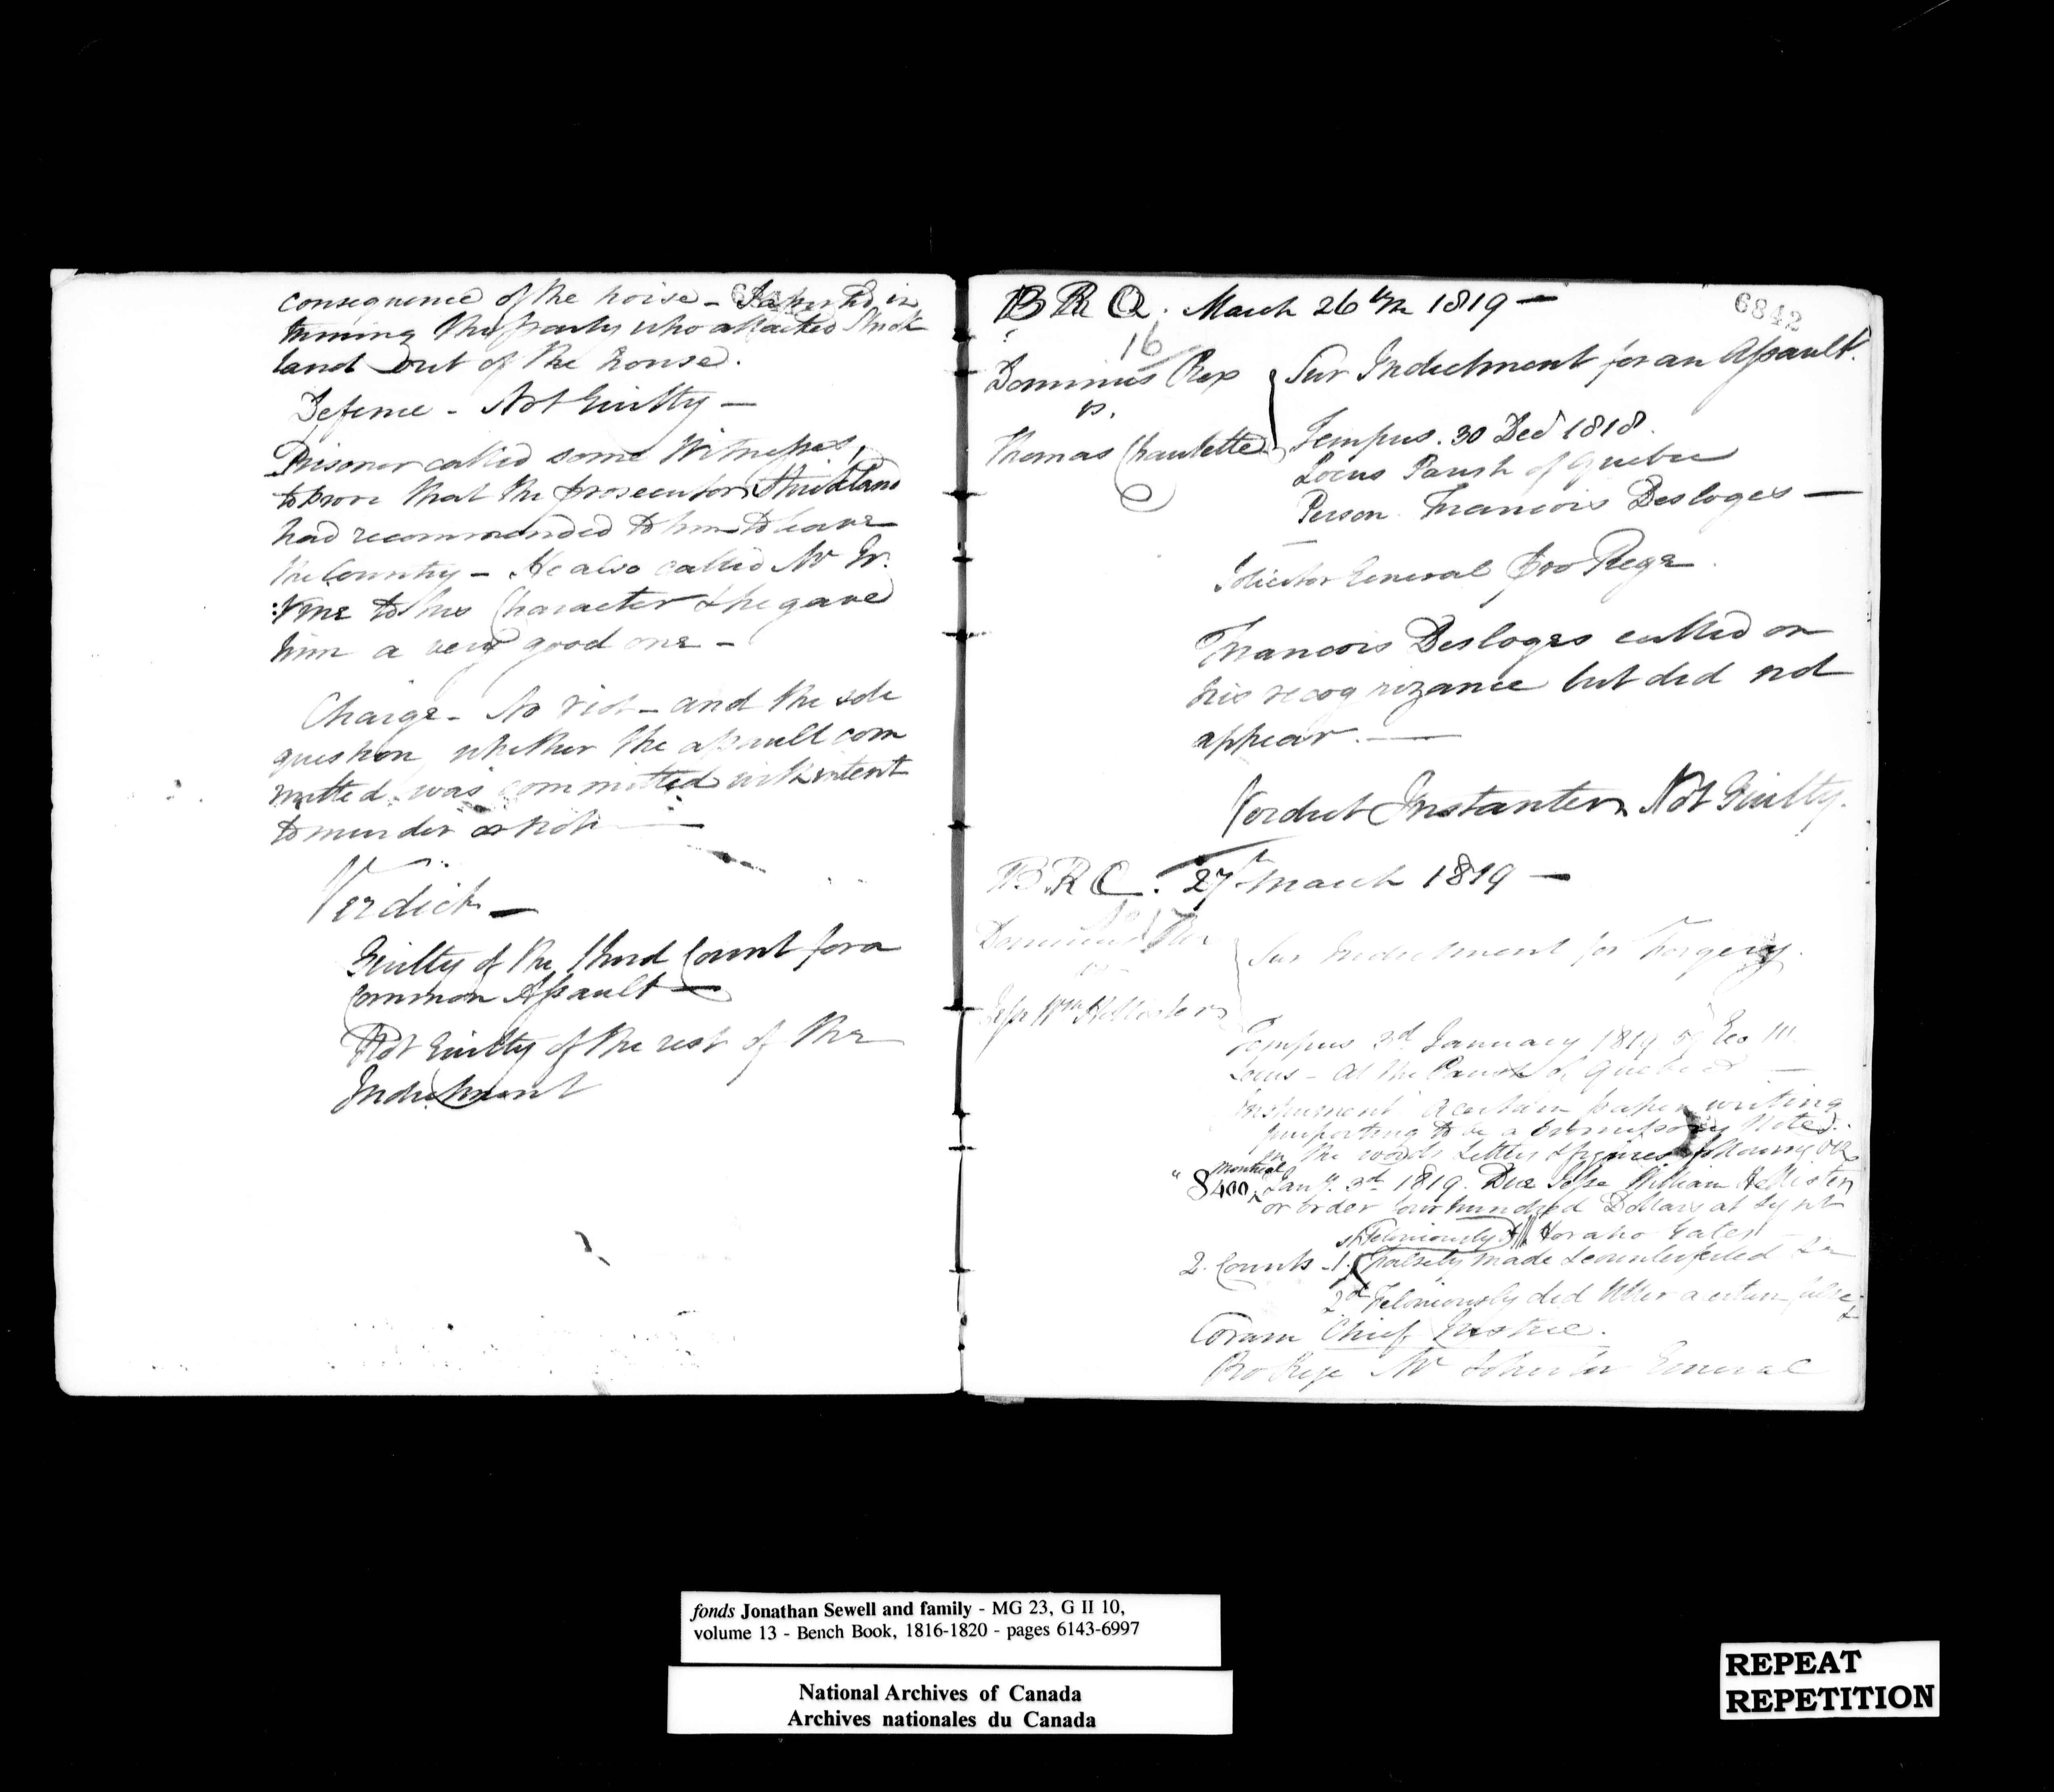 consequence of the noise - Saw him
turning the party who attacked Strick
land out of the house.
Defence - Not Guilty -
Prisoner called some Witnesses,
to prove that the prosecutor Strickland
had recommended to him to leave
the Country - He also called Mr Ir:
:vine to his Character & he gave
him a very good one -
Charge - No riot - and the sole
question whether the assault com
mitted was committed with intent
to murder or not
Verdict -
Guilty of the third Count for a
Common Assault -
Not Guilty of the rest of the
Indictment
6842
B R Q. March 26th 1819 -
16
Dominus Rex
vs.
Thomas Chaulette
Sur Indictment for an Assault.
Tempus. 30 Decr 1818.
Locus Parish of Quebec
Person Francois Desloges -
Solicitor General pro Rege.
Francois Desloges called on
his recognizance but did not
appear. -
Verdict Instanter Not Guilty.
B R Q. 27th March 1819 -
Dominus Rex
vs
Jesse Wm Hollister
Sur Indictment for Forgery.
Tempus 3d January 1819 59 Geo III.
Locus - at the Parish of Quebec -
Instrument a certain paper writing
purporting to be a promissory Note
in the words letters & figures following viz
Montreal
"$400. Jany. 3d 1819. Due Jesse William Hollister
or order four hundred Dollars at sight
Feloniously Horatio Gates
2. Counts - 1. falsely made & counterfeited &c
2d Feloniously did Utter a certain false
&
Coram Chief Justice.
Pro Rege Mr Solicitor General
fonds Jonathan Sewell and family - MG 23, G II 10,
volume 13 - Bench Book, 1816-1820 - pages 6143-6997
National Archives of Canada
Archives nationales du Canada
REPEAT
REPETITION